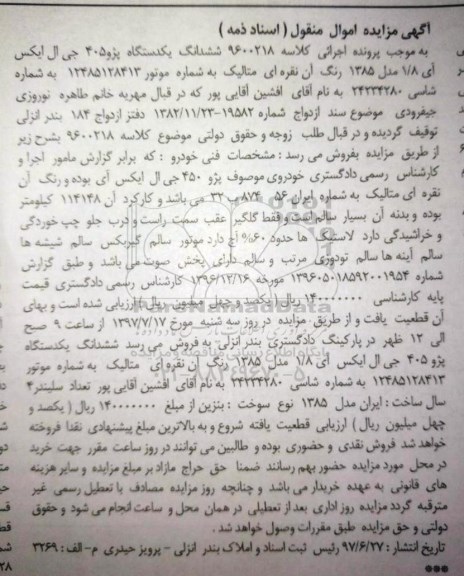 آگهی مزایده اموال منقول ( اسناد ذمه )
به موجب پرونده اجرائی کلاسه ۹۶۰۰۲۱۸ ششدانگ یکدستگاه پژو۴۰۵ جی ال ایکس
آی ۱/۸ مدل ۱۳۸۵ رنگ آن نقره ای متالیک به شماره موتور ۱۲۴۸۵۱۲۸۴۱۳ به شماره
شاسی ۲۴۲۳۴۲۸۰ به نام آقای افشین آقایی پور که در قبال مهریه خانم طاهره نوروزی
جیفرودی موضوع سند ازدواج شماره ۱۹۵۸۲-۱۳۸۲/۱۱/۲۳ دفتر ازدواج ۱۸۴ بندر انزلی
توقیف گردیده و در قبال طلب زوجه و حقوق دولتی موضوع کلاسه ۹۶۰۰۲۱۸ بشرح زیر
از طریق مزایده بفروش می رسد : مشخصات فنی خودرو : که برابر گزارش مامور اجرا و
کارشناس رسمی دادگستری خودروی موصوف پژو ۴۵۰ جی ال ایکس آی بوده و رنگ آن
نقره ای متالیک به شماره ایران ۵۶ ۸۷۴ ۳۲ می باشد و کارکرد آن ۱۱۴۱۴۸ کیلومتر
بوده و بدنه آن بسیار سالم است و فقط گلگیر عقب سمت راست و درب جلو چپ خوردگی
و خراشیدگی دارد لاستیک ها حدود ۶۰% آج دارد موتور سالم گیربکس سالم شیشه ها
سالم آینه ها سالم تودوزی مرتب و سالم دارای پخش صوت می باشد و طبق گزارش
شماره ۱۳۹۶۰۵۰۱۸۵۹۲۰۰۱۹۵۴ مورخه ۱۳۹۶/۱۲/۲۶ کارشناس رسمی دادگستری قیمت
پایه کارشناسی ۱۴۰۰۰۰۰۰۰ ریال ( یکصد و چهل میلیون ریال) ارزیابی شده است و بهای
آن قطعیت یافت و از طریق مزایده در روز سه شنبه مورخ ۱۳۹۷/۷/۱۷ از ساعت ۹ صبح
الی ۱۲ ظهر در پارکینگ دادگستری بندر انزلی به فروش می رسد ششدانگ یکدستگاه
پژو ۴۰۵ جی ال ایکس آی ۱/۸ مدل ۱۳۸۵ رنگ آن نقره ای متالیک به شماره موتور
۱۲۴۸۵۱۲۸۴۱۳ به شماره شاسی ۲۴۲۳۴۲۸۰ به نام آقای افشین آقایی پور تعداد سلیندر۴
سال ساخت : ایران مدل ۱۳۸۵ نوع سوخت : بنزین از مبلغ ۱۴۰۰۰۰۰۰۰ ریال ( یکصد و
چهل میلیون ریال ) ارزیابی قطعیت یافته شروع و به بالاترین مبلغ پیشنهادی نقدا فروخته
خواهد شد فروش نقدی و حضوری بوده و طالبین می توانند در روز ساعت مقرر جهت خرید
در محل مورد مزایده حضور بهم رسانند ضمنا حق حراج مازاد بر مبلغ مزایده و سایر هزینه
های قانونی به عهده خریدار می باشد و چنانچه روز مزایده مصادف با تعطیل رسمی غیر
مترقبه گردد مزایده روز اداری بعد از تعطیلی در همان محل و ساعت انجام می شود و حقوق
دولتی و حق مزایده طبق مقررات وصول خواهد شد .
تاریخ انتشار : ۹۷/۶/۲۷ رئیس ثبت اسناد و املاک بندر انزلی - پرویز حیدری م-الف : ۳۲۶۹